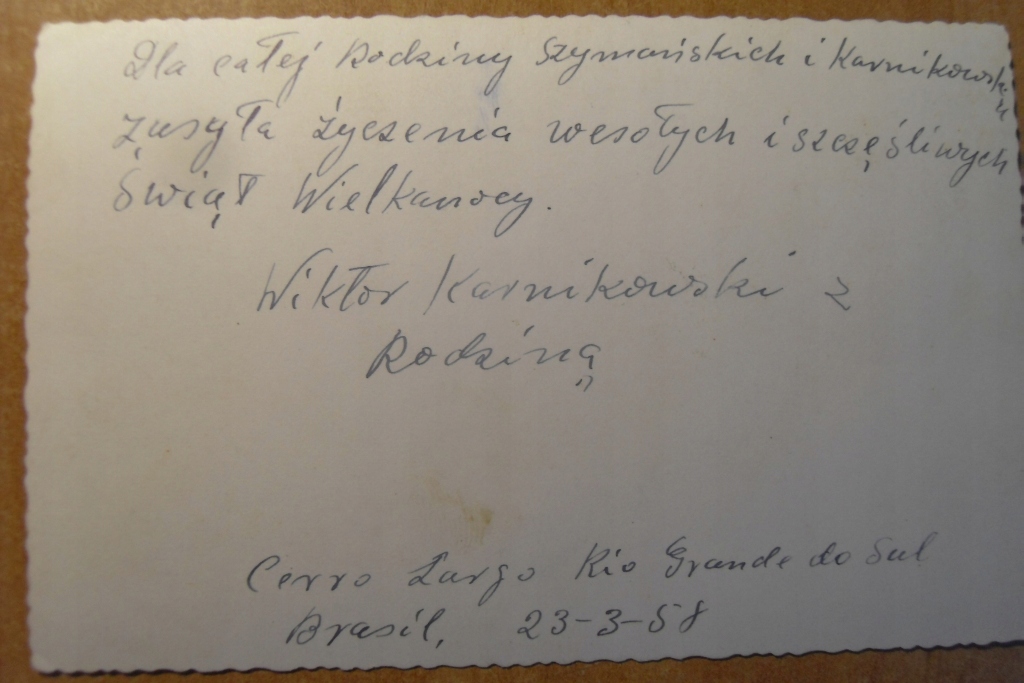 Dla całej Rodziny Szymańskich i Karnikowskich
zasyła życzenia wesołych i szczęśliwych
Świąt Wielkanocy.
Wiktor Karnikowski z
Rodziną
Cerro Largo Rio Grande do Sul
Brasil, 23-3-58